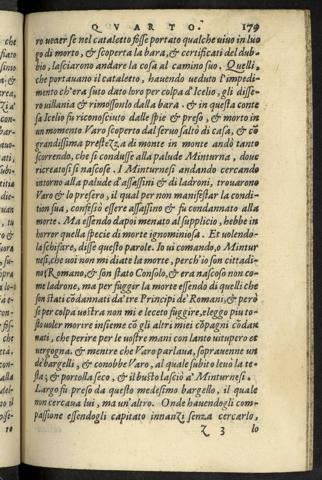 QVARTO. 179
ro veder se nel cataletto fosse portato qualche viuo in luo
go di morto, & scoperta la bara, & certificati del dub-
bio, lasciarono andare la cosa al camino suo. Quelli,
che portauano il cataletto, hauendo veduto l'impedi-
mento ch'era suto dato loro per colpa d'Icelio, gli disse-
ro uillania & rimossonlo dalla bara. & in questa conte
sa Icelio fu riconosciuto dalle spie & preso, & morto in
un momento Varo scoperto dal seruo saltò di casa, & cō
grandissima prestezza di monte in monte andò tanto
scorrendo, che si condusse alla palude Minturna, doue
ricreatosi si nascose. I Minturnesi andando cercando
intorno alla palude d'assassini & di ladroni, trouarono
Varo & lo presero, il qual per non manifestar la condi-
tion sua, confessò essere assassino & fu condannato alla
morte. Ma essendo dapoi menato al supplicio, hebbe in
horror quella specie di morte ignominiosa. Et uolendo-
la schifare, disse queste parole. Io ui comando, o Mintur
nesi, che uoi non mi diate la morte, perch'io son cittadi-
no Romano, & son stato Consolo, & era nascoso non co-
me ladrone, ma per fuggir la morte essendo di quelli che
son stati cōdannati da' tre Principi de' Romani, & però
se per colpa uostra non mi è leceto fuggire, eleggo piu to-
sto uoler morire insieme cō gli altri miei cōpagni cōdan
nati, che perire per le uostre mani con tanto uitupero et
uergogna. & mentre che Varo parlaua, soprauenne un
de' bargelli, & conobbe Varo, al quale subito leuò la te-
sta; & portolla seco, & il busto lasciò a' Minturnesi.
Largo fu preso da questo medesimo bargello, il quale
non cercaua lui, ma un'altro. Onde hauendogli com-
passione essendogli capitato innanzi senza cercarlo,
Z 3 lo